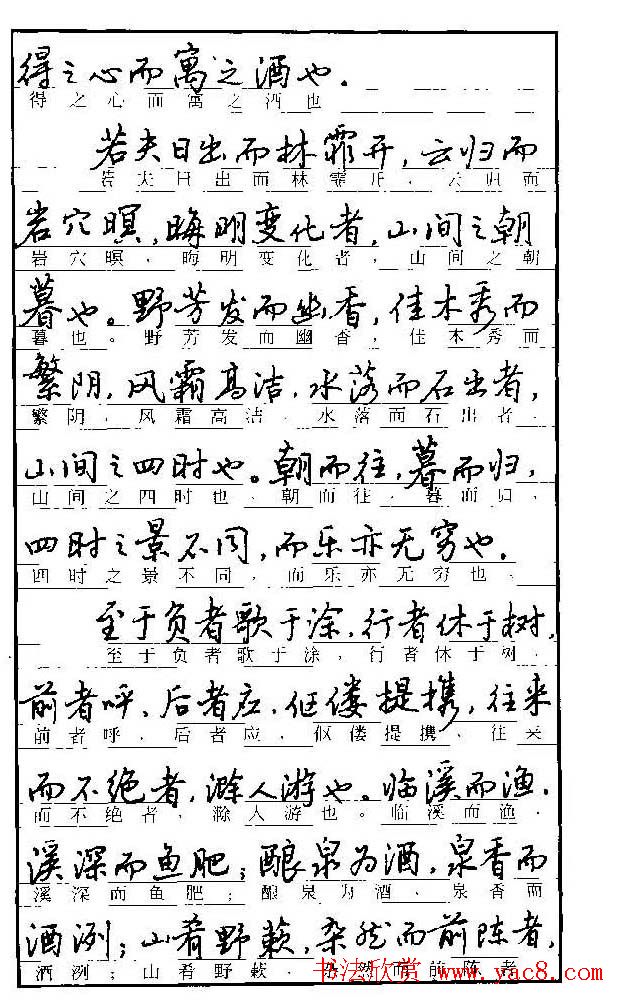 得之心而寓之酒也。
得之心而寓之酒也
若夫日出而林霏开，云归而
若夫日出而林霏开，云归而
岩穴暝，晦明变化者，山间之朝
岩穴暝，晦明变化者，山间之朝
暮也。野芳发而幽香，佳木秀而
暮也。野芳发而幽香，佳木秀而
繁阴，风霜高洁，水落而石出者，
繁阴，风霜高洁，水落而石出者，
山间之四时也。朝而往，暮而归，
山间之四时也，朝而往，暮而归，
四时之景不同，而乐亦无穷也。
四时之景不同，而乐亦无穷也。
至于负者歌于涂，行者休于树，
至于负者歌于涂，行者休于树，
前者呼，后者应，伛偻提携，往来
前者呼，后者应，伛偻提携，往来
而不绝者，滁人游也。临溪而渔，
而不绝者，滁人游也。临溪而渔，
溪深而鱼肥；酿泉为酒，泉香而
溪深而鱼肥；酿泉为酒，泉香而
酒洌；山肴野蔌，杂然而前陈者，
酒洌；山肴野蔌，杂然而前陈者
书法欣赏 www.yac8.com